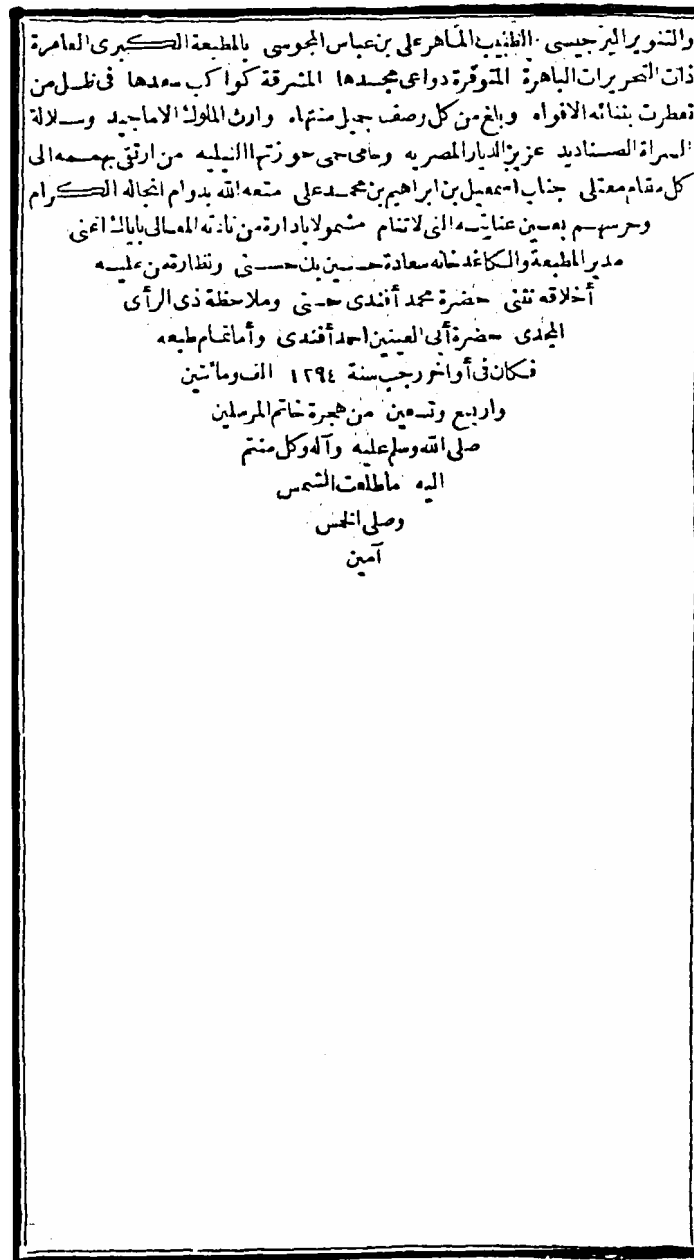 والتنوير البرجيسى الطبيب الماهر على بن عباس المجوسى بالمطبعة الكبرى العامرة
ذات التحريرات الباهرة المتوفرة دواعى مجدها المشرقة كواكب سعدها فى ظل من
تعطرت بثنائه الافواه وبلغ من كل وصف جميل منتهاه وارث الملوك الاماجيد وسلالة
السراة الصناديد عزيز الديار المصريه وحامى حمى حوزتها النيليه من ارتقى بهممه الى
كل مقام معتلى جناب اسمعيل بن ابراهيم بن محمد على متعه الله بدوام انجاله الكرام
وحرسهم بعين عنايته التى لا تنام مشمولا بادارة من نادته المعالى باياك اعنى
مدير المطبعة والكاغدخانه سعادة حسين بك حسنى ونظارة من عليه
أخلاقه تثنى حضرة محمد أفندى حسنى وملاحظة ذى الرأى
المجدى حضرة أبى العينين احمد أفندى وأما تمام طبعه
فكان فى أواخر رجب سنة ١٢٩٤ الف ومائتين
واربع وتسعين من هجرة خاتم المرسلين
صلى الله وسلم عليه وآله وكل منتم
اليه ما طلعت الشمس
وصلى الخمس
آمين